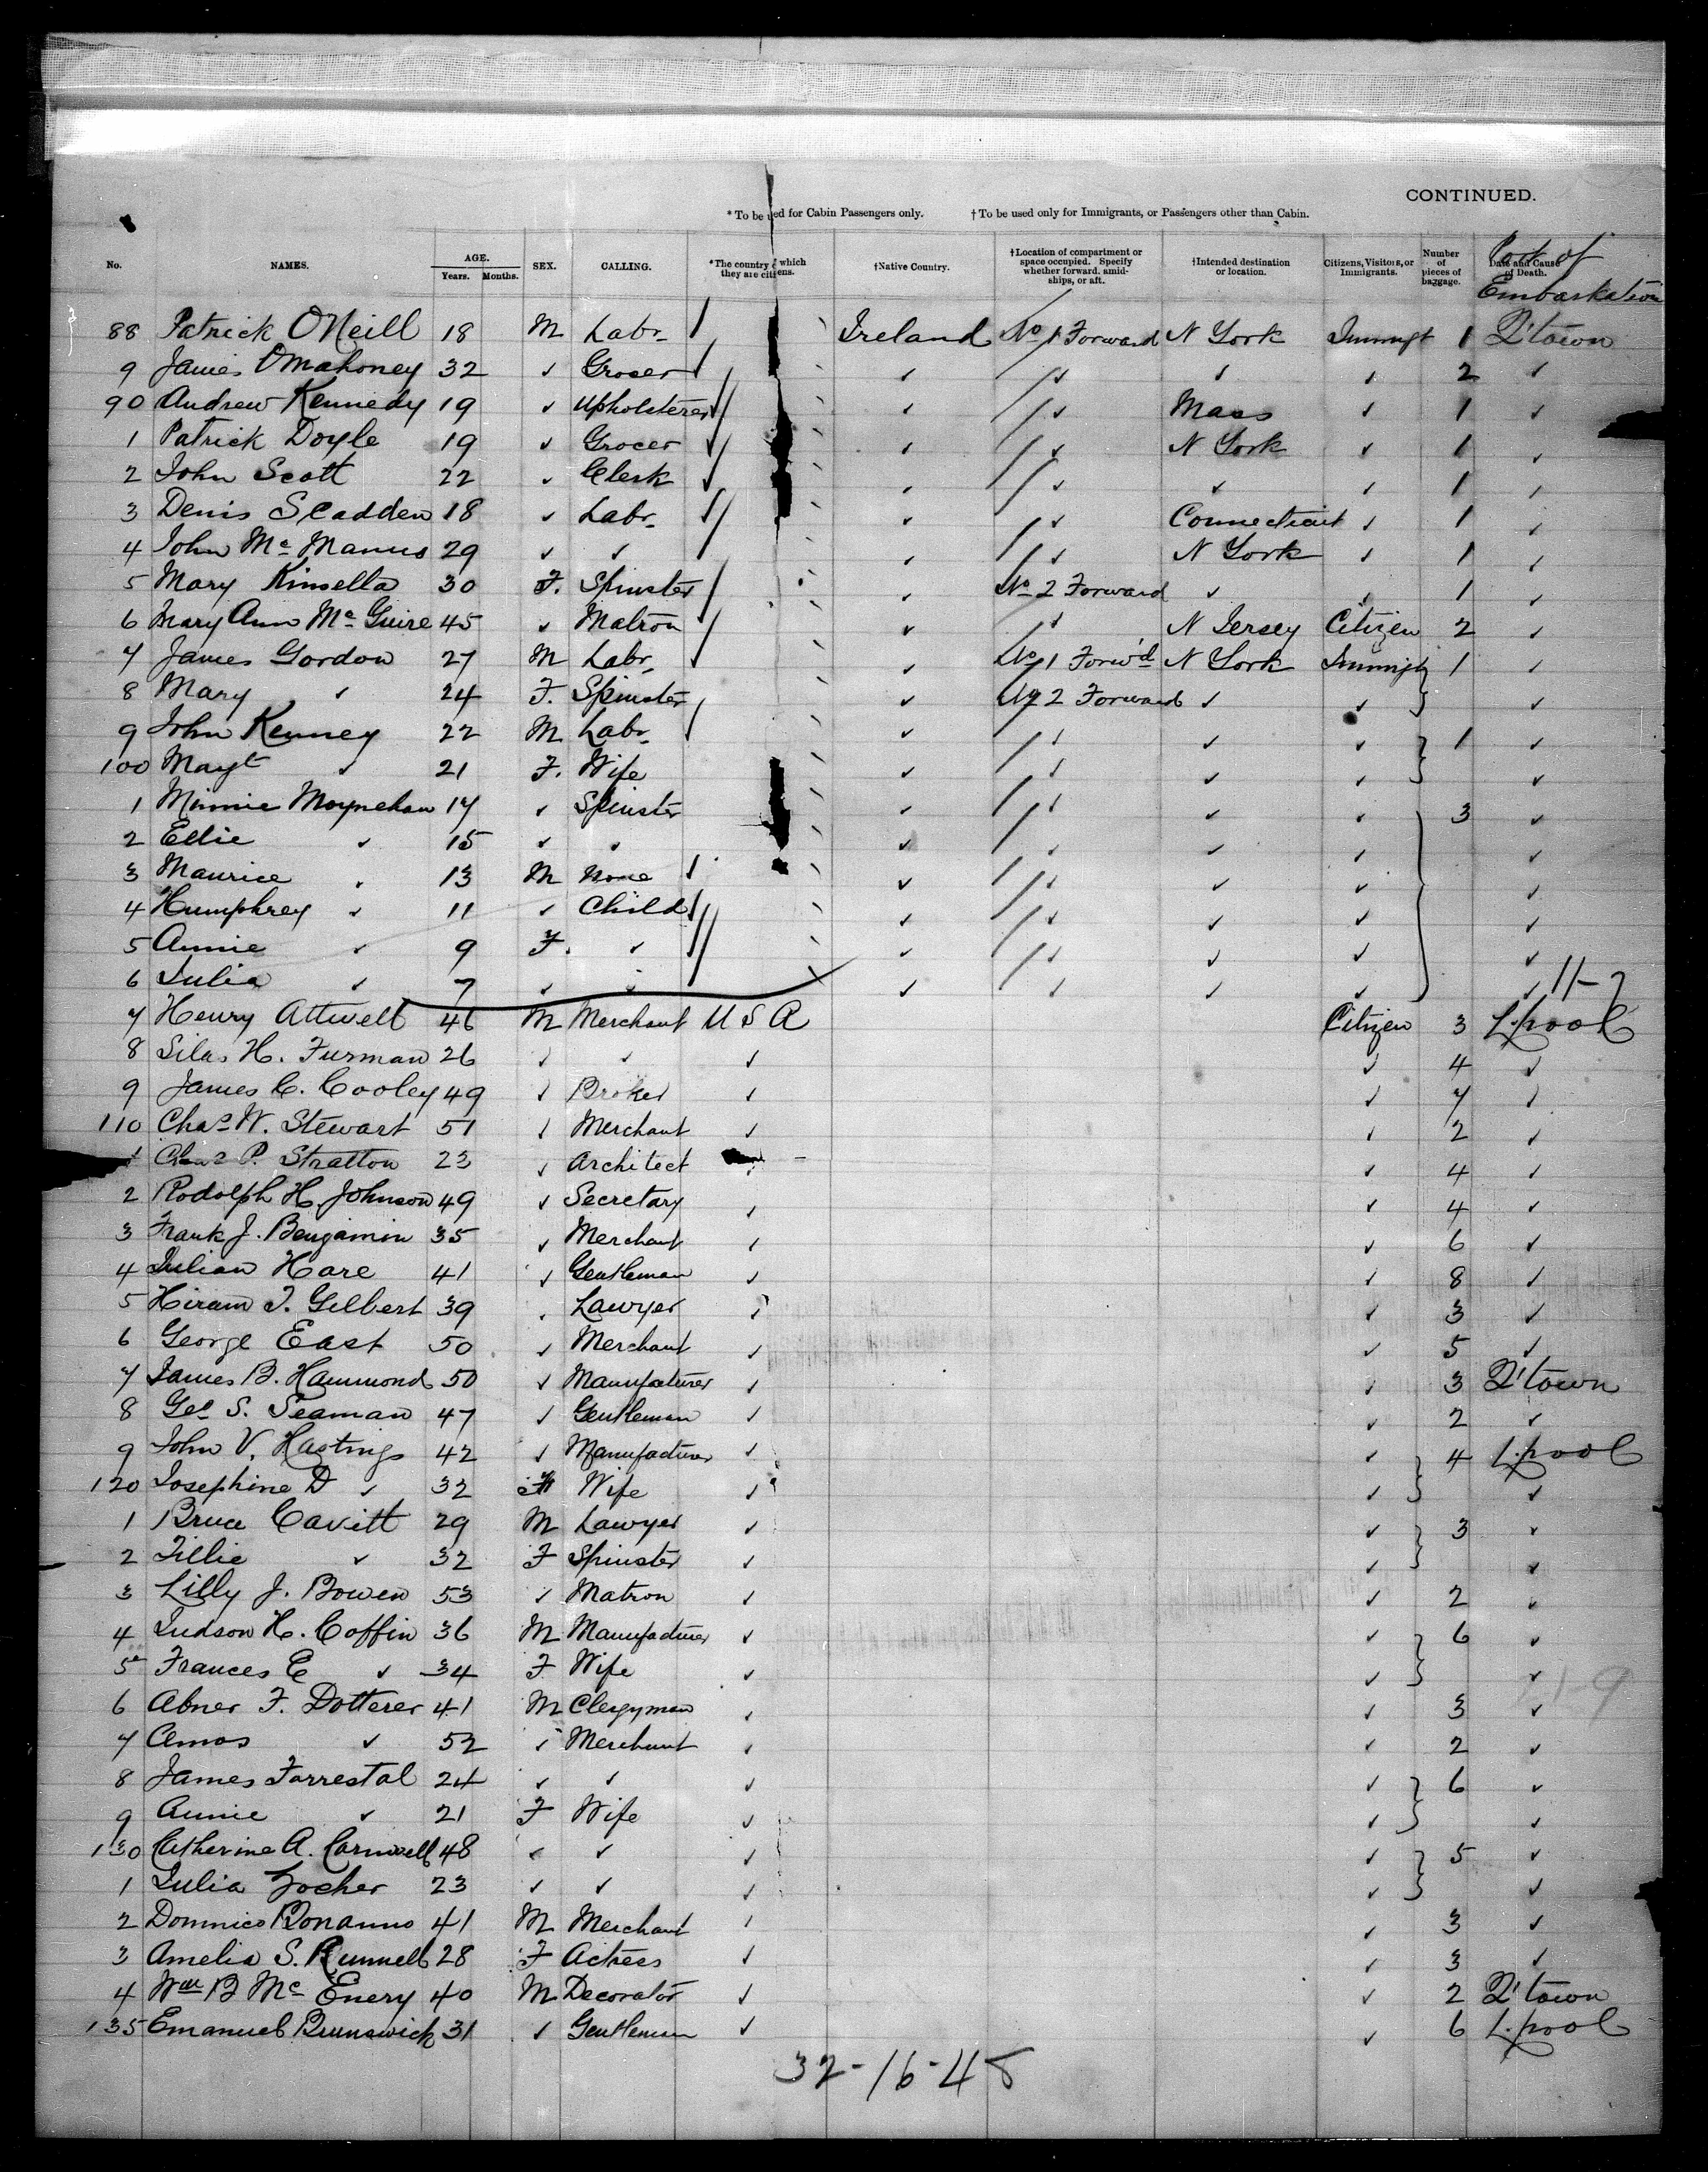 CONTINUED.
* To be used for Cabin Passengers only. † To be used only for Immigrants, or Passengers other than Cabin.
No. NAMES. AGE. Years. Months. SEX. CALLING. *The country of which they are citizens. †Native Country. †Location of compartment or space occupied. Specify whether forward, amidships, or aft. †Intended destination or location. Citizens, Visitors, or Immigrants. Number of pieces of baggage. Date and Cause of Death. Port of Embarkation
88 Patrick O'Neill 18 M Labr Ireland No 1 Forward N York Immigt 1 Q'town
9 James O'Mahoney 32 ✓ Grocer ✓ ✓ ✓ ✓ 2 ✓
90 Andrew Kennedy 19 ✓ Upholsterer ✓ ✓ Mass ✓ 1 ✓
1 Patrick Doyle 19 ✓ Grocer ✓ ✓ N York ✓ 1 ✓
2 John Scott 22 ✓ Clerk ✓ ✓ ✓ ✓ 1 ✓
3 Denis Scadden 18 ✓ Labr ✓ ✓ Connecticut ✓ 1 ✓
4 John Mc Manus 29 ✓ ✓ ✓ ✓ N York ✓ 1 ✓
5 Mary Kinsella 30 F. Spinster ✓ No 2 Forward ✓ ✓ 1 ✓
6 Mary Ann Mc Guire 45 ✓ Matron ✓ ✓ N Jersey Citizen 2 ✓
7 James Gordon 27 M Labr ✓ No 1 Forw'd N York Immigt 1 ✓
8 Mary ✓ 24 F. Spinster ✓ No 2 Forward ✓ ✓ ✓
9 John Kenney 22 M Labr ✓ ✓ ✓ ✓ 1 ✓
100 Magt ✓ 21 F. Wife ✓ ✓ ✓ ✓ ✓
1 Minnie Moynehan 17 ✓ Spinster ✓ ✓ ✓ ✓ 3 ✓
2 Ellie ✓ 15 ✓ ✓ ✓ ✓ ✓ ✓ ✓
3 Maurice ✓ 13 M None ✓ ✓ ✓ ✓ ✓
4 Humphrey ✓ 11 ✓ Child ✓ ✓ ✓ ✓ ✓
5 Annie ✓ 9 F. ✓ ✓ ✓ ✓ ✓ ✓
6 Julia ✓ 7 ✓ ✓ ✓ ✓ ✓ ✓ ✓ 11-7
7 Henry Attwell 46 M Merchant U S A Citizen 3 L.pool
8 Silas H. Furman 26 ✓ ✓ ✓ ✓ 4 ✓
9 James C. Cooley 49 ✓ Broker ✓ ✓ 7 ✓
110 Chas W. Stewart 51 ✓ Merchant ✓ ✓ 2 ✓
1 Chas P. Stratton 23 ✓ Architect ✓ ✓ 4 ✓
2 Rodolph H. Johnson 49 ✓ Secretary ✓ ✓ 4 ✓
3 Frank J. Benjamin 35 ✓ Merchant ✓ ✓ 6 ✓
4 Julian Hare 41 ✓ Gentleman ✓ ✓ 8 ✓
5 Hiram T. Gilbert 39 ✓ Lawyer ✓ ✓ 3 ✓
6 George East 50 ✓ Merchant ✓ ✓ 5 ✓
7 James B. Hammond 50 ✓ Manufacturer ✓ ✓ 3 Q'town
8 Geo S. Seaman 47 ✓ Gentleman ✓ ✓ 2 ✓
9 John V. Hastings 42 ✓ Manufacturer ✓ ✓ 4 L.pool
120 Josephine D ✓ 32 F Wife ✓ ✓ ✓
1 Bruce Cavitt 29 M Lawyer ✓ ✓ 3 ✓
2 Tillie ✓ 32 F Spinster ✓ ✓ ✓
3 Lilly J. Bowen 53 ✓ Matron ✓ ✓ 2 ✓
4 Judson H. Coffin 36 M Manufacturer ✓ ✓ 6 ✓
5 Frances E ✓ 34 F Wife ✓ ✓ ✓
6 Abner F. Dotterer 41 M Clergyman ✓ ✓ 3 ✓
7 Amos ✓ 52 ✓ Merchant ✓ ✓ 2 ✓
8 James Forrestal 24 ✓ ✓ ✓ ✓ 6 ✓
9 Annie ✓ 21 F Wife ✓ ✓ ✓
130 Catherine A. Cornwell 48 ✓ ✓ ✓ ✓ 5 ✓
1 Julia Zocher 23 ✓ ✓ ✓ ✓ ✓
2 Domnico Bonanno 41 M Merchant ✓ ✓ 3 ✓
3 Amelia S. Runnell 28 F Actress ✓ ✓ 3 ✓
4 Wm B Mc Enery 40 M Decorator ✓ ✓ 2 Q'town
135 Emanuel Brunswick 31 ✓ Gentleman ✓ ✓ 6 L.pool
32-16-48